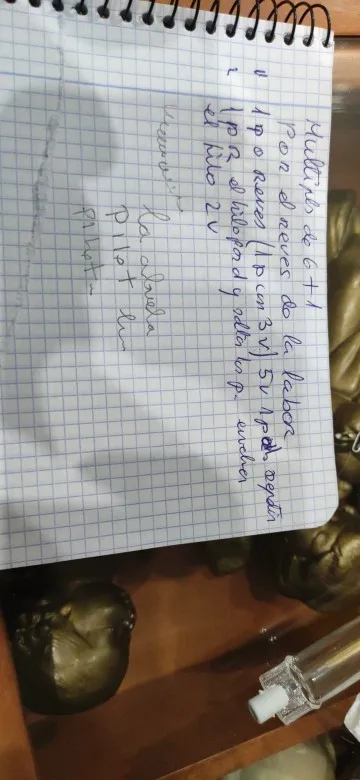 Multiplo de 6 + 1
Por el reves de la labor
1 p o reves (1 p con 3 v) 5 v 1 p repetir
2 1 p R el hilo por d y soltar los p. envolver
el hilo 2 v
la abuela
Pilot
Pilot